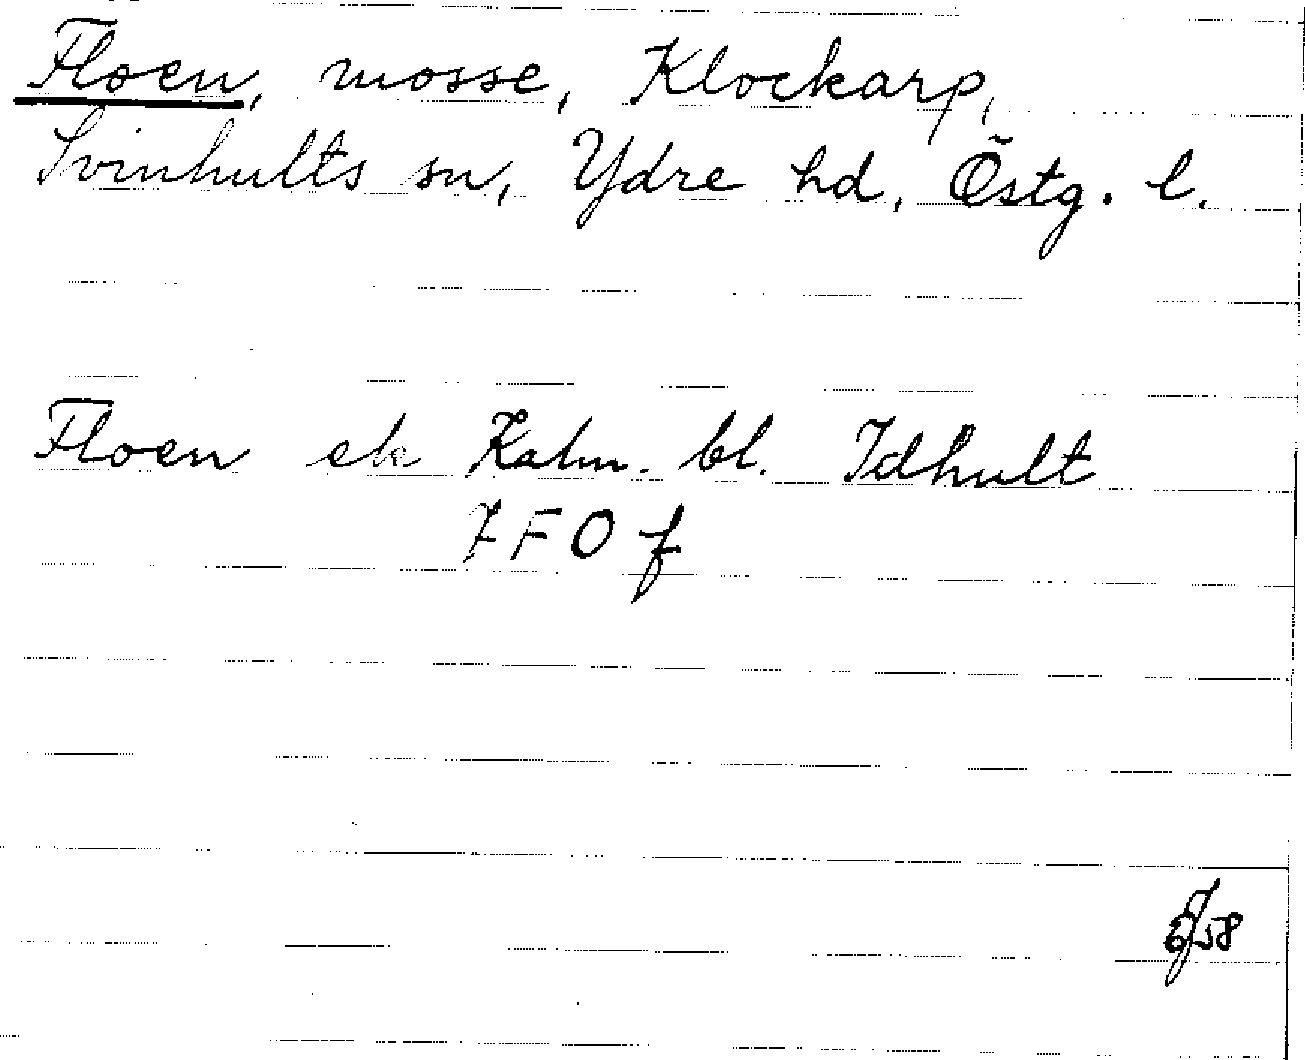 Floen, mosse, Klockarp,
Svinhults sn, Ydre hd, Östg. l.
Floen ek Kalm. bl. Idhult
7 F O f